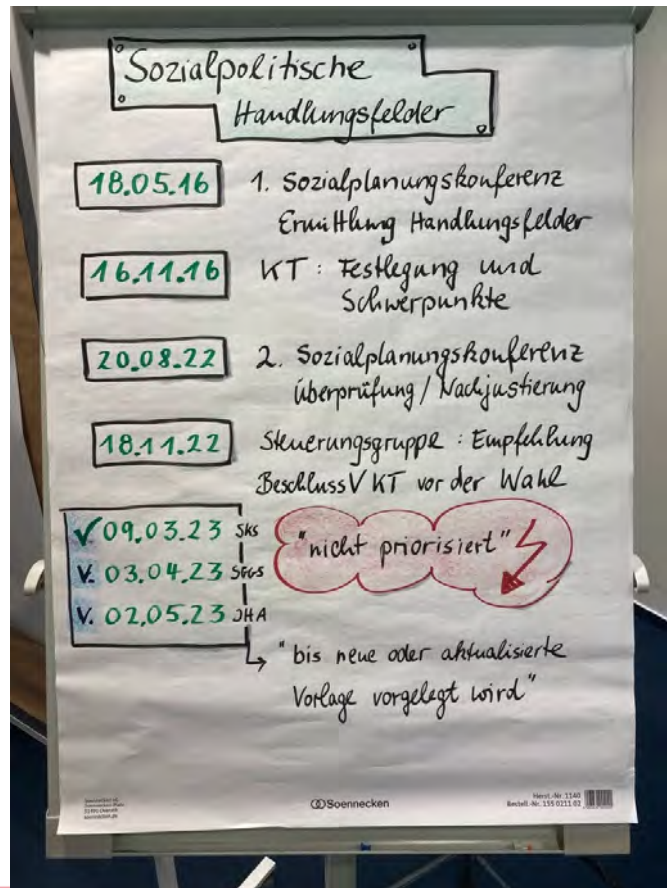 Sozialpolitische
Handlungsfelder
18.05.16 1. Sozialplanungskonferenz
Ermittlung Handlungsfelder
16.11.16 KT: Festlegung und
Schwerpunkte
20.08.22 2. Sozialplanungskonferenz
Überprüfung / Nachjustierung
18.11.22 Steuerungsgruppe: Empfehlung
BeschlussV KT vor der Wahl
V. 09.03.23 SKS "nicht priorisiert"
V. 03.04.23 SGGS
V. 02.05.23 JHA
"bis neue oder aktualisierte
Vorlage vorgelegt wird"
Soennecken
Herst.-Nr. 1140
Bestell.-Nr. 155 0211 02